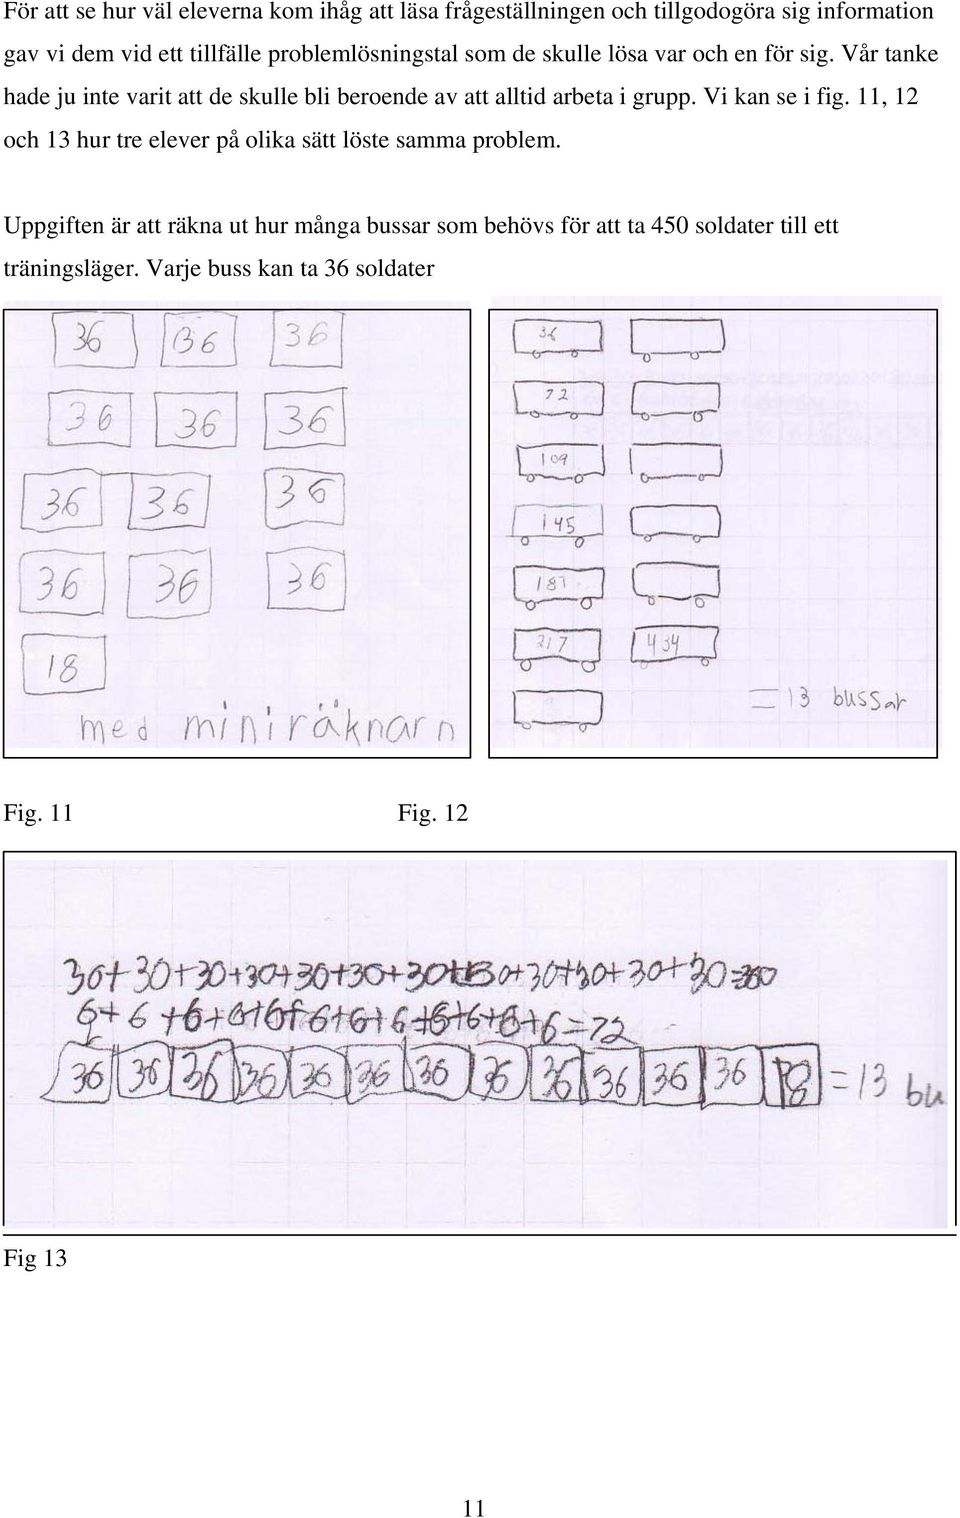 För att se hur väl eleverna kom ihåg att läsa frågeställningen och tillgodogöra sig information
gav vi dem vid ett tillfälle problemlösningstal som de skulle lösa var och en för sig. Vår tanke
hade ju inte varit att de skulle bli beroende av att alltid arbeta i grupp. Vi kan se i fig. 11, 12
och 13 hur tre elever på olika sätt löste samma problem.
Uppgiften är att räkna ut hur många bussar som behövs för att ta 450 soldater till ett
träningsläger. Varje buss kan ta 36 soldater
36 36 36
36 36 36
36 36 36
36 36 36
18
med miniräknarn
36
72
109
145
181
217 434
=13 bussar
Fig. 11 Fig. 12
30+30+30+30+30+30+30+30+30+30+30+30=360
6+6+6+6+6+6+6+6+6+6+6+6=72
36 36 36 36 36 36 36 36 36 36 36 36 18 =13 bu
Fig 13
11